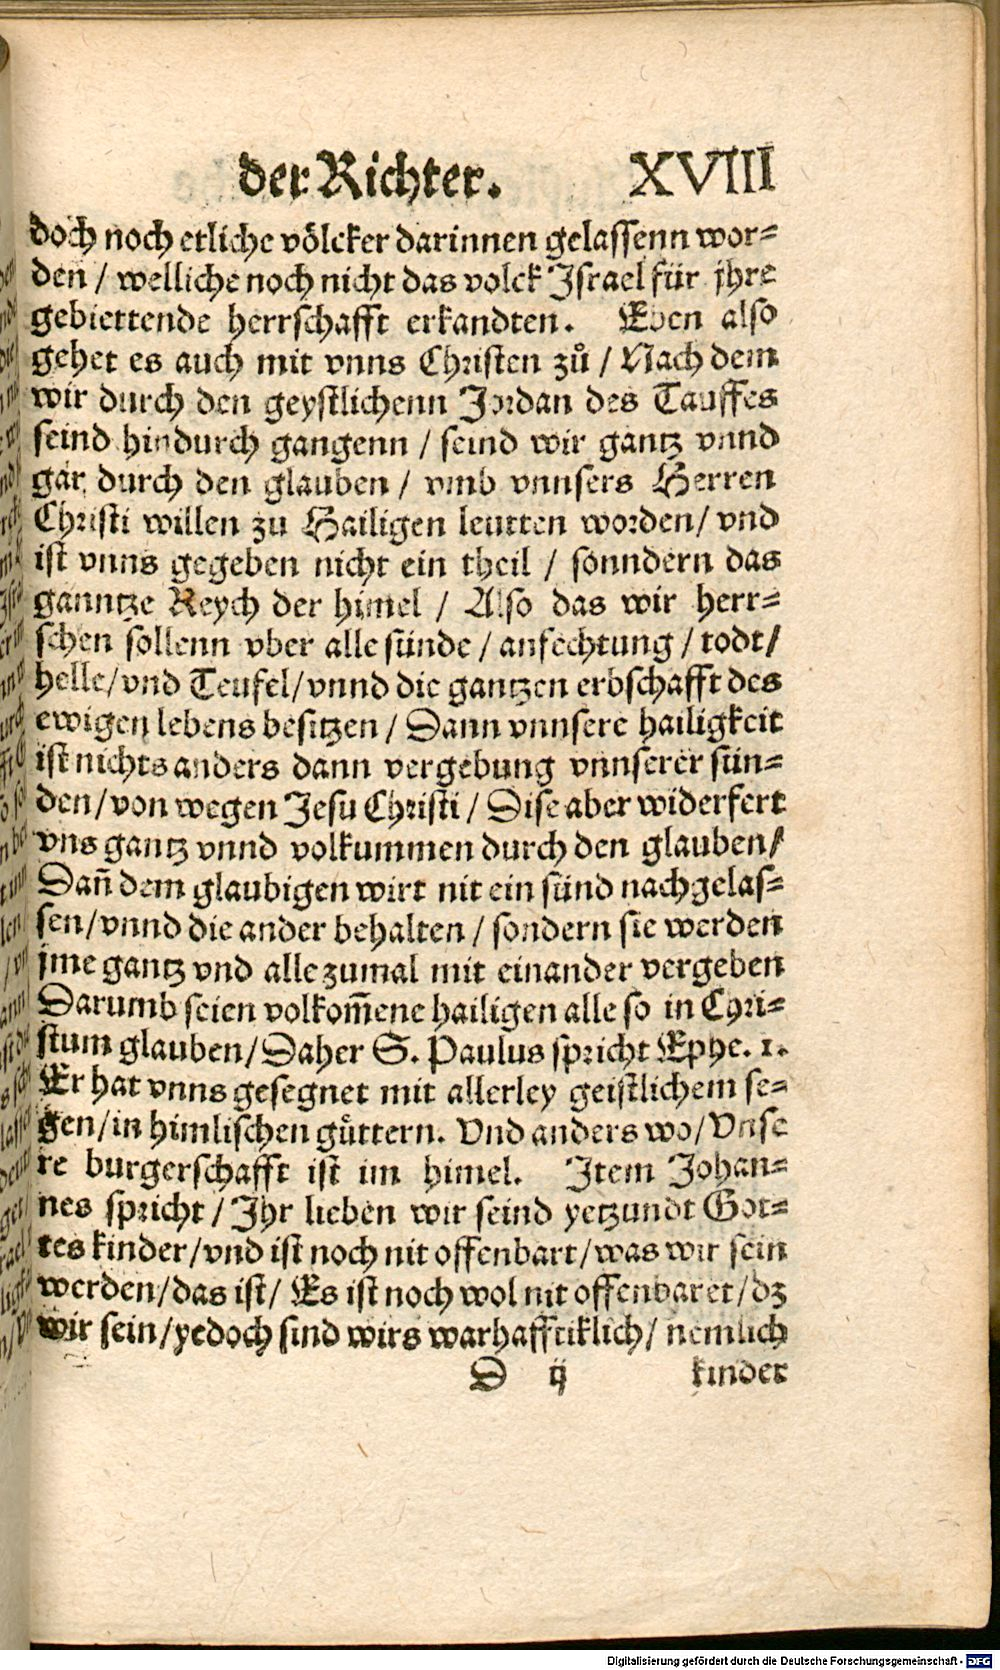 der Richter. XVIII
doch noch etliche völcker darinnen gelassenn wor=
den / welliche noch nicht das volck Israel für jhre
gebiettende herrschafft erkandten. Eben also
gehet es auch mit vnns Christen zů / Nach dem
wir durch den geystlichenn Jordan des Tauffes
seind hindurch gangenn / seind wir gantz vnnd
gar durch den glauben / vmb vnnsers Herren
Christi willen zu Hailigen leutten worden / vnd
ist vnns gegeben nicht ein theil / sonndern das
ganntze Reych der himel / Also das wir herr=
schen sollenn vber alle sünde / anfechtung / todt /
helle / vnd Teufel / vnnd die gantzen erbschafft des
ewigen lebens besitzen / Dann vnnsere hailigkeit
ist nichts anders dann vergebung vnnserer sün=
den / von wegen Jesu Christi / Dise aber widerfert
vns gantz vnnd volkummen durch den glauben /
Dañ dem glaubigen wirt nit ein sünd nachgelas=
sen / vnnd die ander behalten / sondern sie werden
jme gantz vnd alle zumal mit einander vergeben
Darumb seien volkom̃ene hailigen alle so in Chri=
stum glauben / Daher S. Paulus spricht Ephe. 1.
Er hat vnns gesegnet mit allerley geistlichem se=
gen / in himlischen gůttern. Vnd anders wo / Vnse
re burgerschafft ist im himel. Item Johan=
nes spricht / Ihr lieben wir seind yetzundt Got=
tes kinder / vnd ist noch nit offenbart / was wir sein
werden / das ist / Es ist noch wol nit offenbaret / dz
wir sein / yedoch sind wirs warhafftiklich / nemlich
D ij kinder
Digitalisierung gefördert durch die Deutsche Forschungsgemeinschaft - DFG